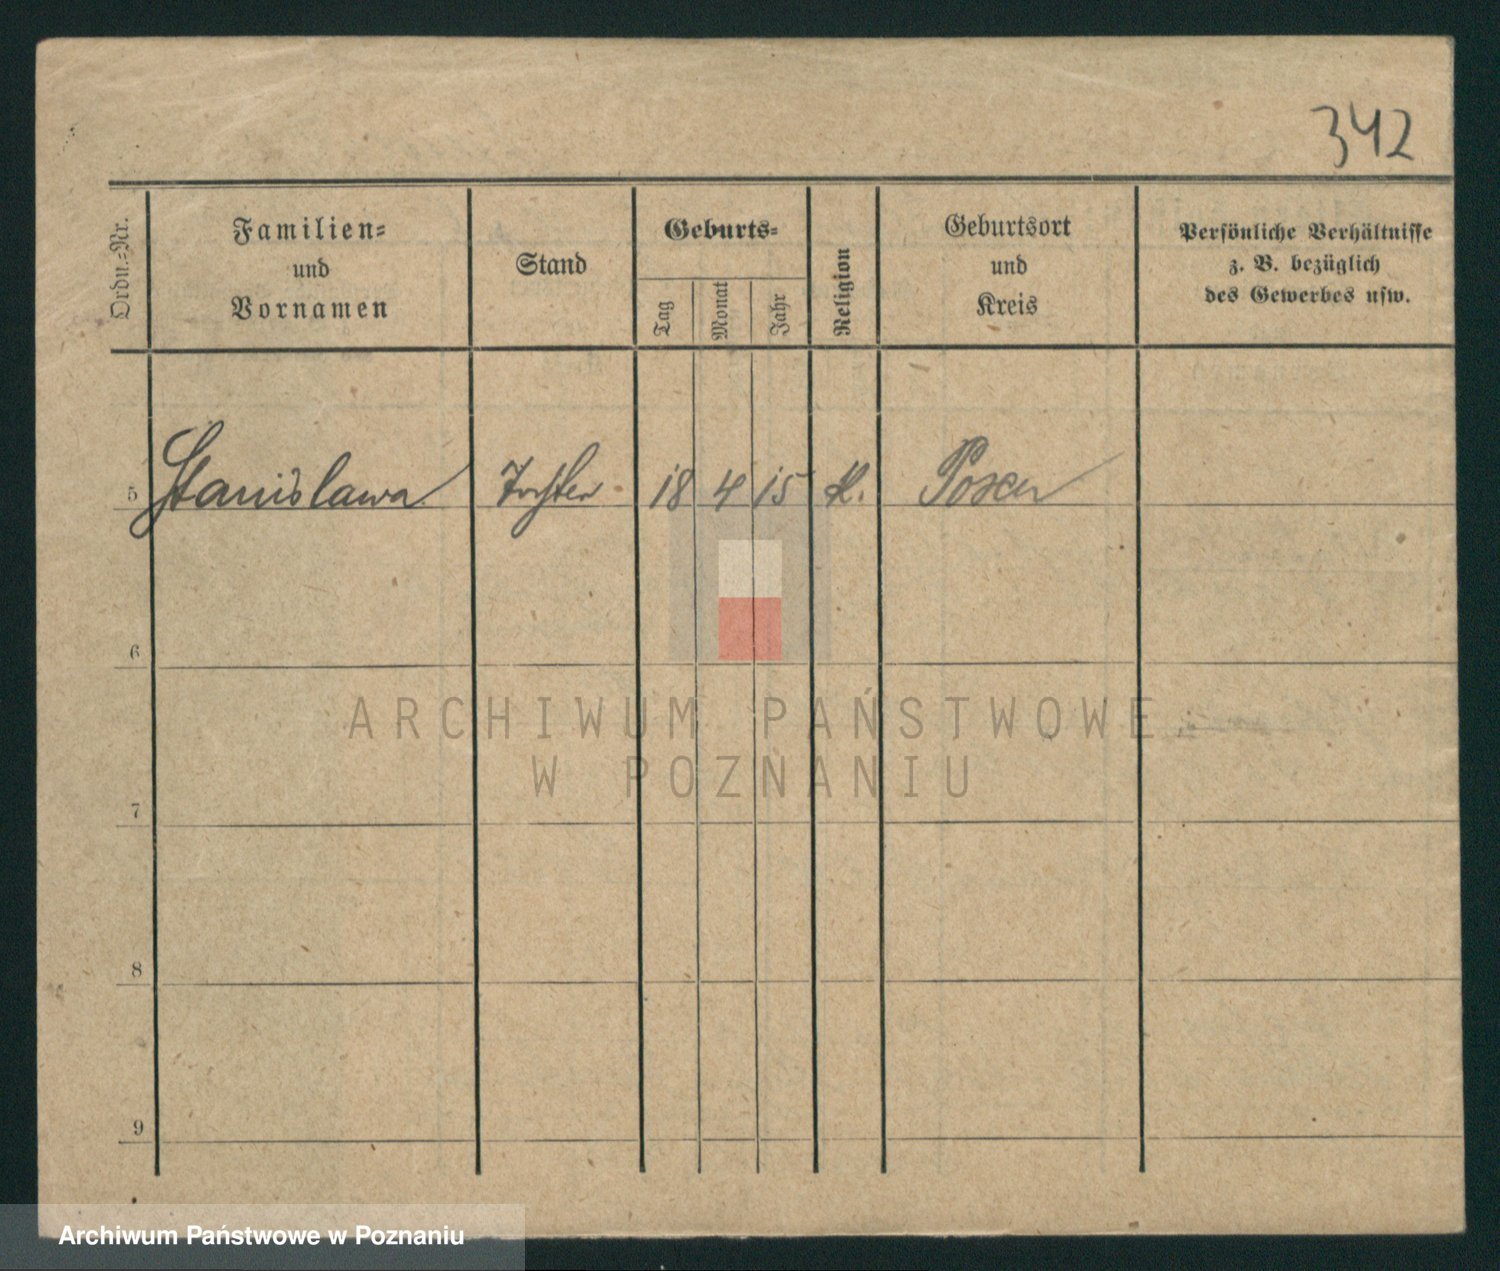 342
Ordn.-Nr.
Familien-
und
Vornamen
Stand
Geburts-
Tag
Monat
Jahr
Religion
Geburtsort
und
Kreis
Persönliche Verhältnisse
z. B. bezüglich
des Gewerbes usw.
5 Stanislawa Tochter 18 4 15 k. Posen
6
ARCHIWUM PAŃSTWOWE
W POZNANIU
7
8
9
Archiwum Państwowe w Poznaniu